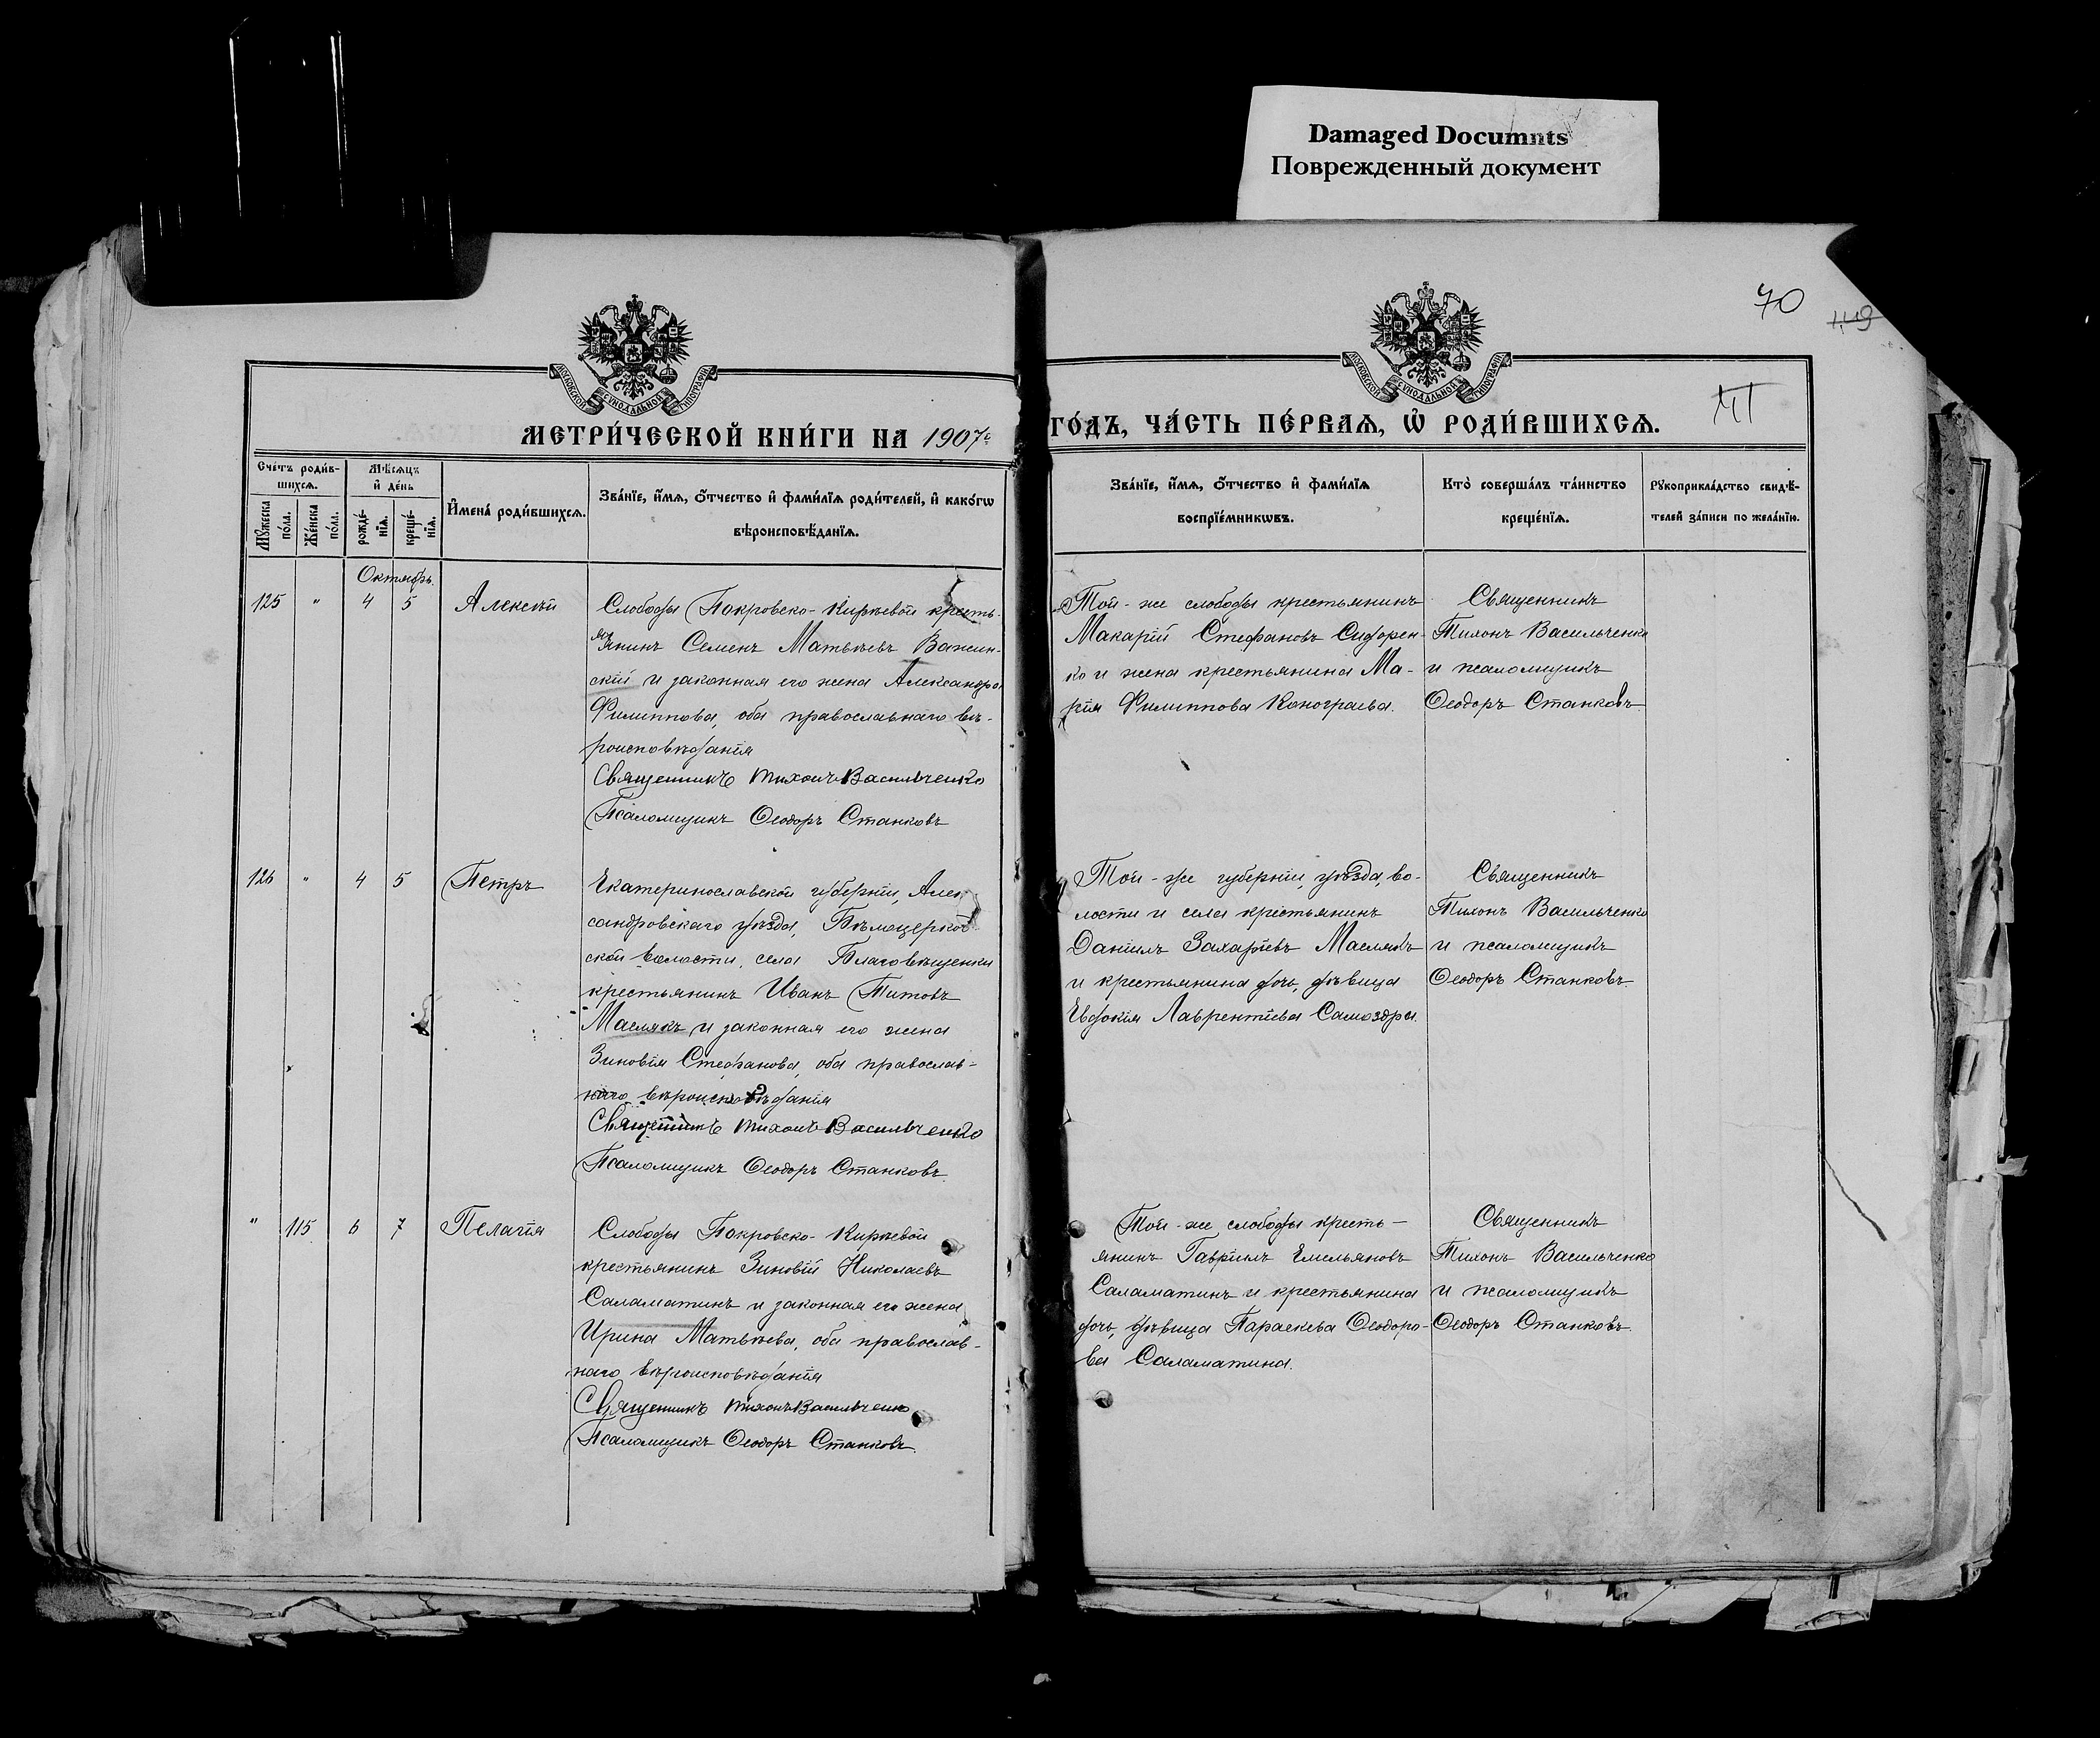 Damaged Documnts
Поврежденный документ
70
149
МОСКОВСКОЙ СѴНОДАЛЬНОЙ ТИПОГРАФІИ
МОСКОВСКОЙ СѴНОДАЛЬНОЙ ТИПОГРАФІИ
МЕТРИ́ЧЕСКОЙ КНИ́ГИ НА 1907
ГО́ДЪ, ЧА́СТЬ ПЕ́РВАѦ, Ѡ РОДИ́ВШИХСѦ.
Сче́тъ роди́в-
шихсѧ.
Мꙋ́жеска
по́ла.
Же́нска
по́ла.
Мѣ́сѧцъ
и҆ де́нь
рожде́-
нїѧ.
креще́-
нїѧ.
И҆мена̀ роди́вшихсѧ.
Зва́нїе, и҆́мѧ, ѻ҆́тчество и҆ фами́лїѧ роди́телей, и҆ како́гѡ
вѣроисповѣ́данїѧ.
Зва́нїе, и҆́мѧ, ѻ҆́тчество и҆ фами́лїѧ
воспрїе́мникѡвъ.
Кто̀ соверша́лъ та́инство
креще́нїѧ.
Рꙋкоприкла́дство свидѣ́-
телей за́писи по жела́нїю.
Октябрь.
125 " 4 5 Алексѣй
Слободы Покровско-Кирѣевой кресть-
янинъ Семенъ Матвѣевъ Вожин-
скій и законная его жена Александра
Филиппова, оба православнаго вѣ-
роисповѣданія
Священникъ Тихонъ Васильченко
Псаломщикъ Ѳеодоръ Станковъ
Той-же слободы крестьянинъ
Макарій Стефановъ Сидорен-
ко и жена крестьянина Ма-
рія Филиппова Коногра
Священникъ
Тихонъ Васильченко
и псаломщикъ
Ѳеодоръ Станковъ
126 " 4 5 Петръ
Екатеринославской губерніи, Алек-
сандровскаго уѣзда, Бѣлоцерков-
ской волости, села Благовѣщенки
крестьянинъ Иванъ Титовъ
Маслякъ и законная его жена
Зиновія Стефанова, оба православ-
наго вѣроисповѣданія
Священникъ Тихонъ Васильченко
Псаломщикъ Ѳеодоръ Станковъ.
Той-же губерніи, уѣзда, во-
лости и села крестьянинъ
Даніилъ Захаріевъ Маслякъ
и крестьянина дочь, дѣвица
Евдокія Лаврентіева Самоздра.
Священникъ
Тихонъ Васильченко
и псаломщикъ
Ѳеодоръ Станковъ.
" 115 6 7 Пелагія
Слободы Покровско-Кирѣевой
крестьянинъ Зиновій Николаевъ
Саламатинъ и законная его жена
Ирина Матвѣева, оба православ-
наго вѣроисповѣданія
Священникъ Тихонъ Васильченко
Псаломщикъ Ѳеодоръ Станковъ.
Той-же слободы кресть-
янинъ Гавріилъ Емельяновъ
Саламатинъ и крестьянина
дочь, дѣвица Параскева Ѳеодоро-
ва Саламатина.
Священникъ
Тихонъ Васильченко
и псаломщикъ
Ѳеодоръ Станковъ.